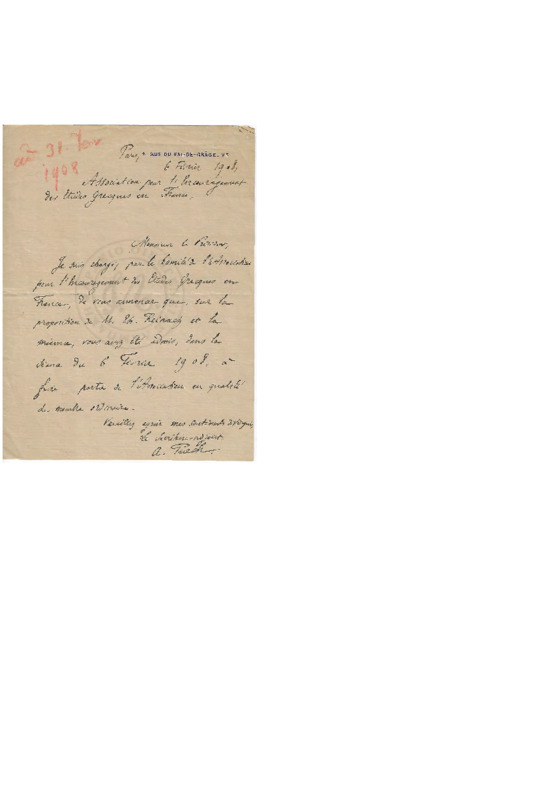 31
1908
Paris, 4 RUE DU VAL-DE-GRÂCE, Vᵉ
6 Février 1908,
Association pour l'Encouragement
des Etudes Grecques en France,
Monsieur le
Je suis chargé, par le Comité de l'Association
pour l'Encouragement des Etudes Grecques en
France, de vous annoncer que, sur la
proposition de M. Th. Reinach et la
mienne, vous avez été admis, dans la
séance du 6 Février 1908, à
faire partie de l'Association en qualité
de membre ordinaire.
Veuillez agréer mes sentiments
Le secrétaire-adjoint
A. Puech.